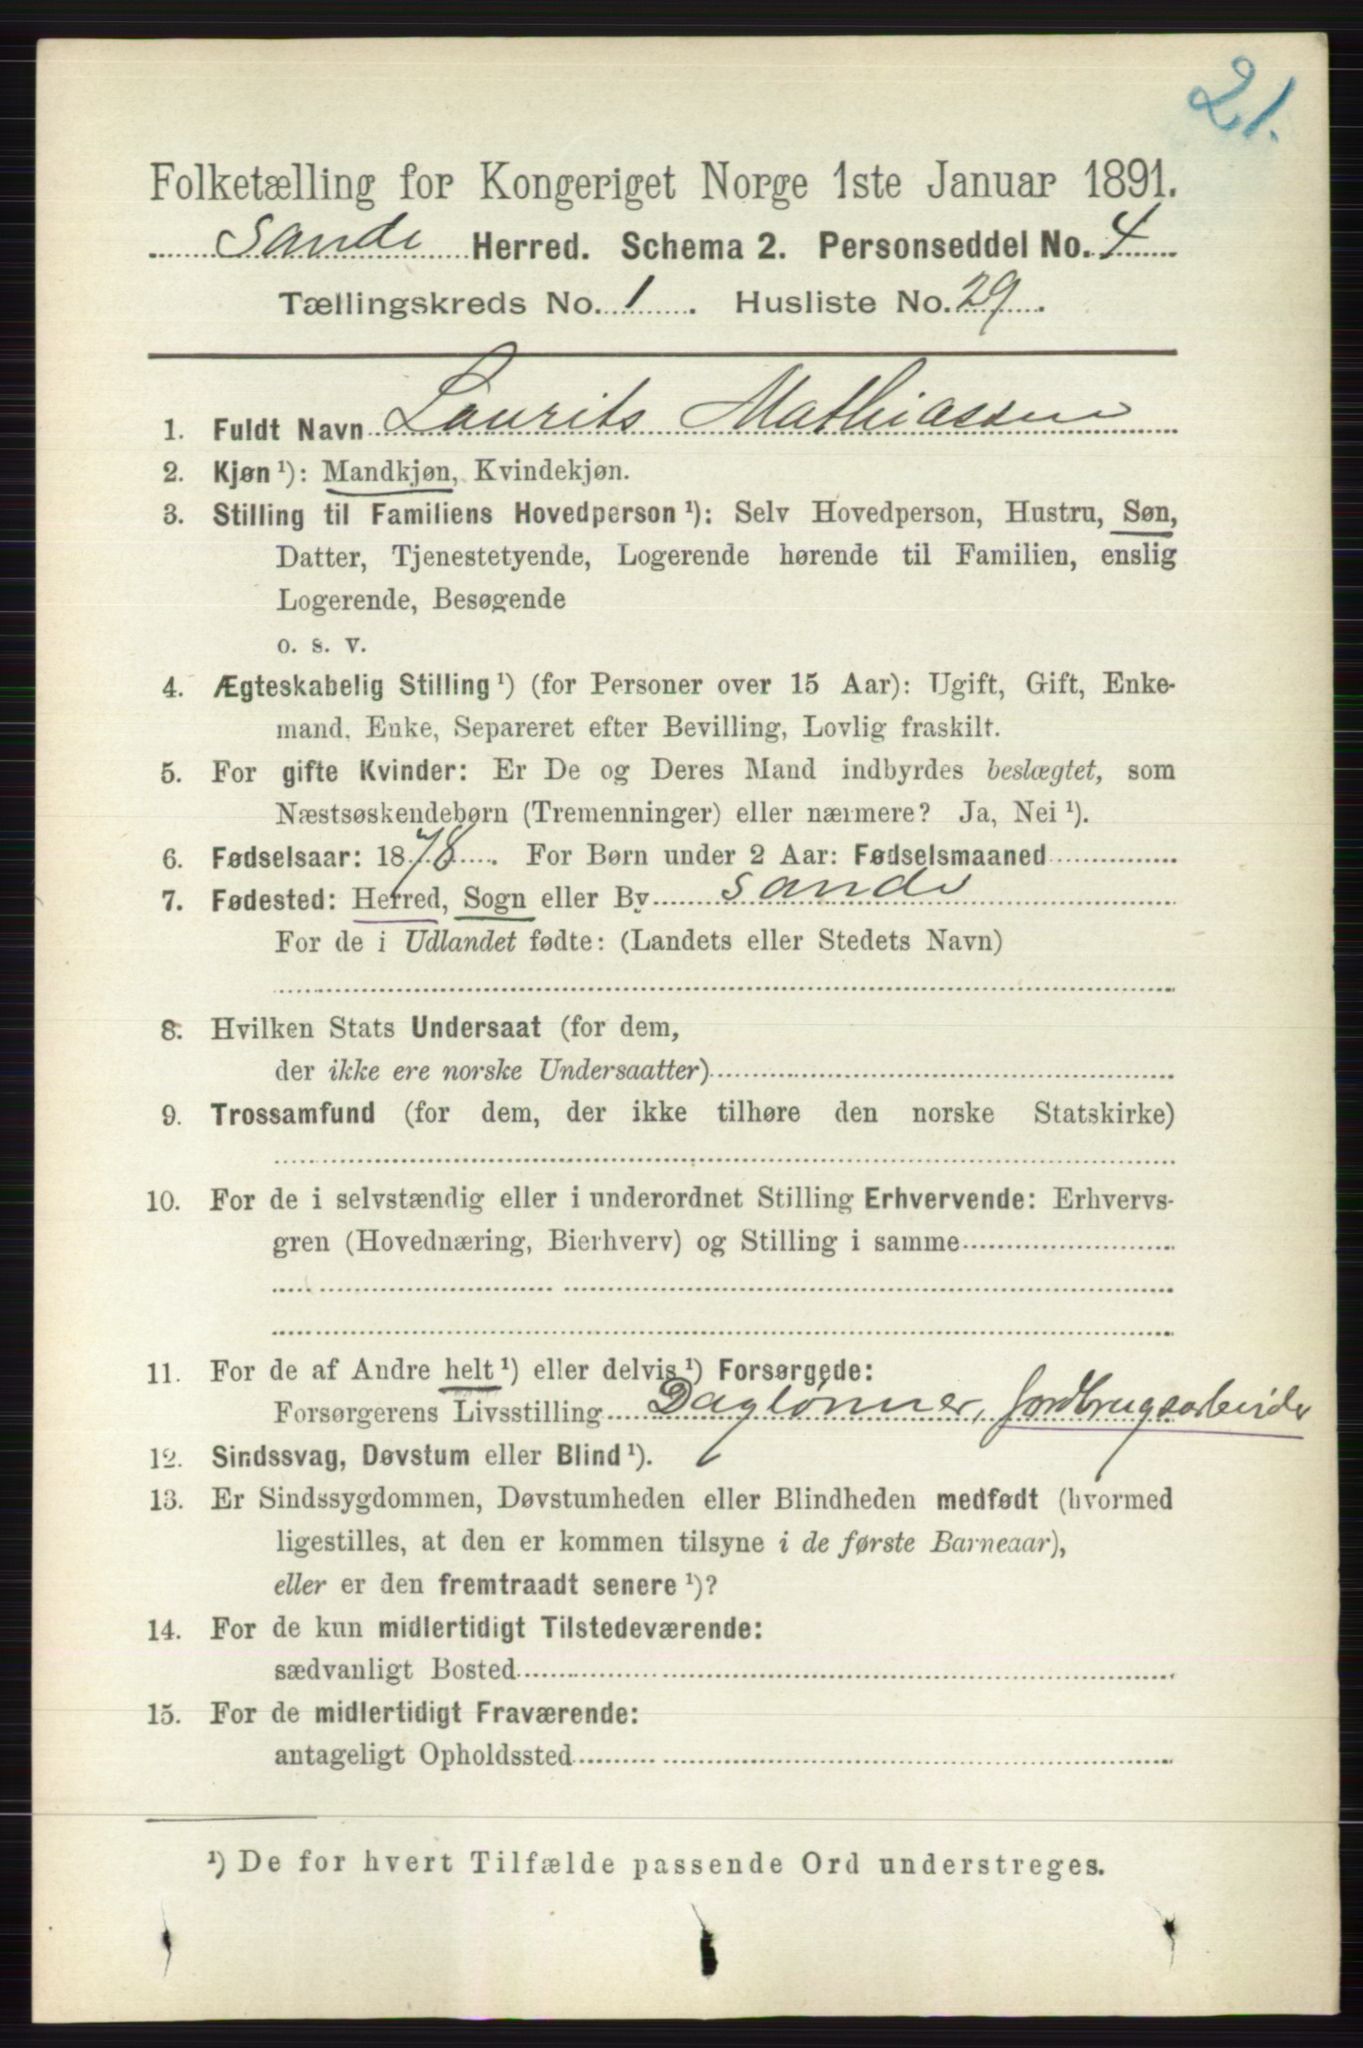 21.
Folketælling for Kongeriget Norge 1ste Januar 1891.
Sande Herred. Schema 2. Personseddel No. 4
Tællingskreds No. 1. Husliste No. 29.
1. Fuldt Navn Laurits Mathiassen
2. Kjøn ¹): Mandkjøn, Kvindekjøn.
3. Stilling til Familiens Hovedperson ¹): Selv Hovedperson, Hustru, Søn,
Datter, Tjenestetyende, Logerende hørende til Familien, enslig
Logerende, Besøgende
o. s. v.
4. Ægteskabelig Stilling ¹) (for Personer over 15 Aar): Ugift, Gift, Enke-
mand, Enke, Separeret efter Bevilling, Lovlig fraskilt.
5. For gifte Kvinder: Er De og Deres Mand indbyrdes beslægtet, som
Næstsøskendebørn (Tremenninger) eller nærmere? Ja, Nei ¹).
6. Fødselsaar: 1878. For Børn under 2 Aar: Fødselsmaaned
7. Fødested: Herred, Sogn eller By Sande
For de i Udlandet fødte: (Landets eller Stedets Navn)
8. Hvilken Stats Undersaat (for dem,
der ikke ere norske Undersaatter)
9. Trossamfund (for dem, der ikke tilhøre den norske Statskirke)
10. For de i selvstændig eller i underordnet Stilling Erhvervende: Erhvervs-
gren (Hovednæring, Bierhverv) og Stilling i samme
11. For de af Andre helt ¹) eller delvis ¹) Forsørgede:
Forsørgerens Livsstilling Daglønner, Jordbrugsarbeider
12. Sindssvag, Døvstum eller Blind ¹).
13. Er Sindssygdommen, Døvstumheden eller Blindheden medfødt (hvormed
ligestilles, at den er kommen tilsyne i de første Barneaar),
eller er den fremtraadt senere ¹)?
14. For de kun midlertidigt Tilstedeværende:
sædvanligt Bosted
15. For de midlertidigt Fraværende:
antageligt Opholdssted
¹) De for hvert Tilfælde passende Ord understreges.